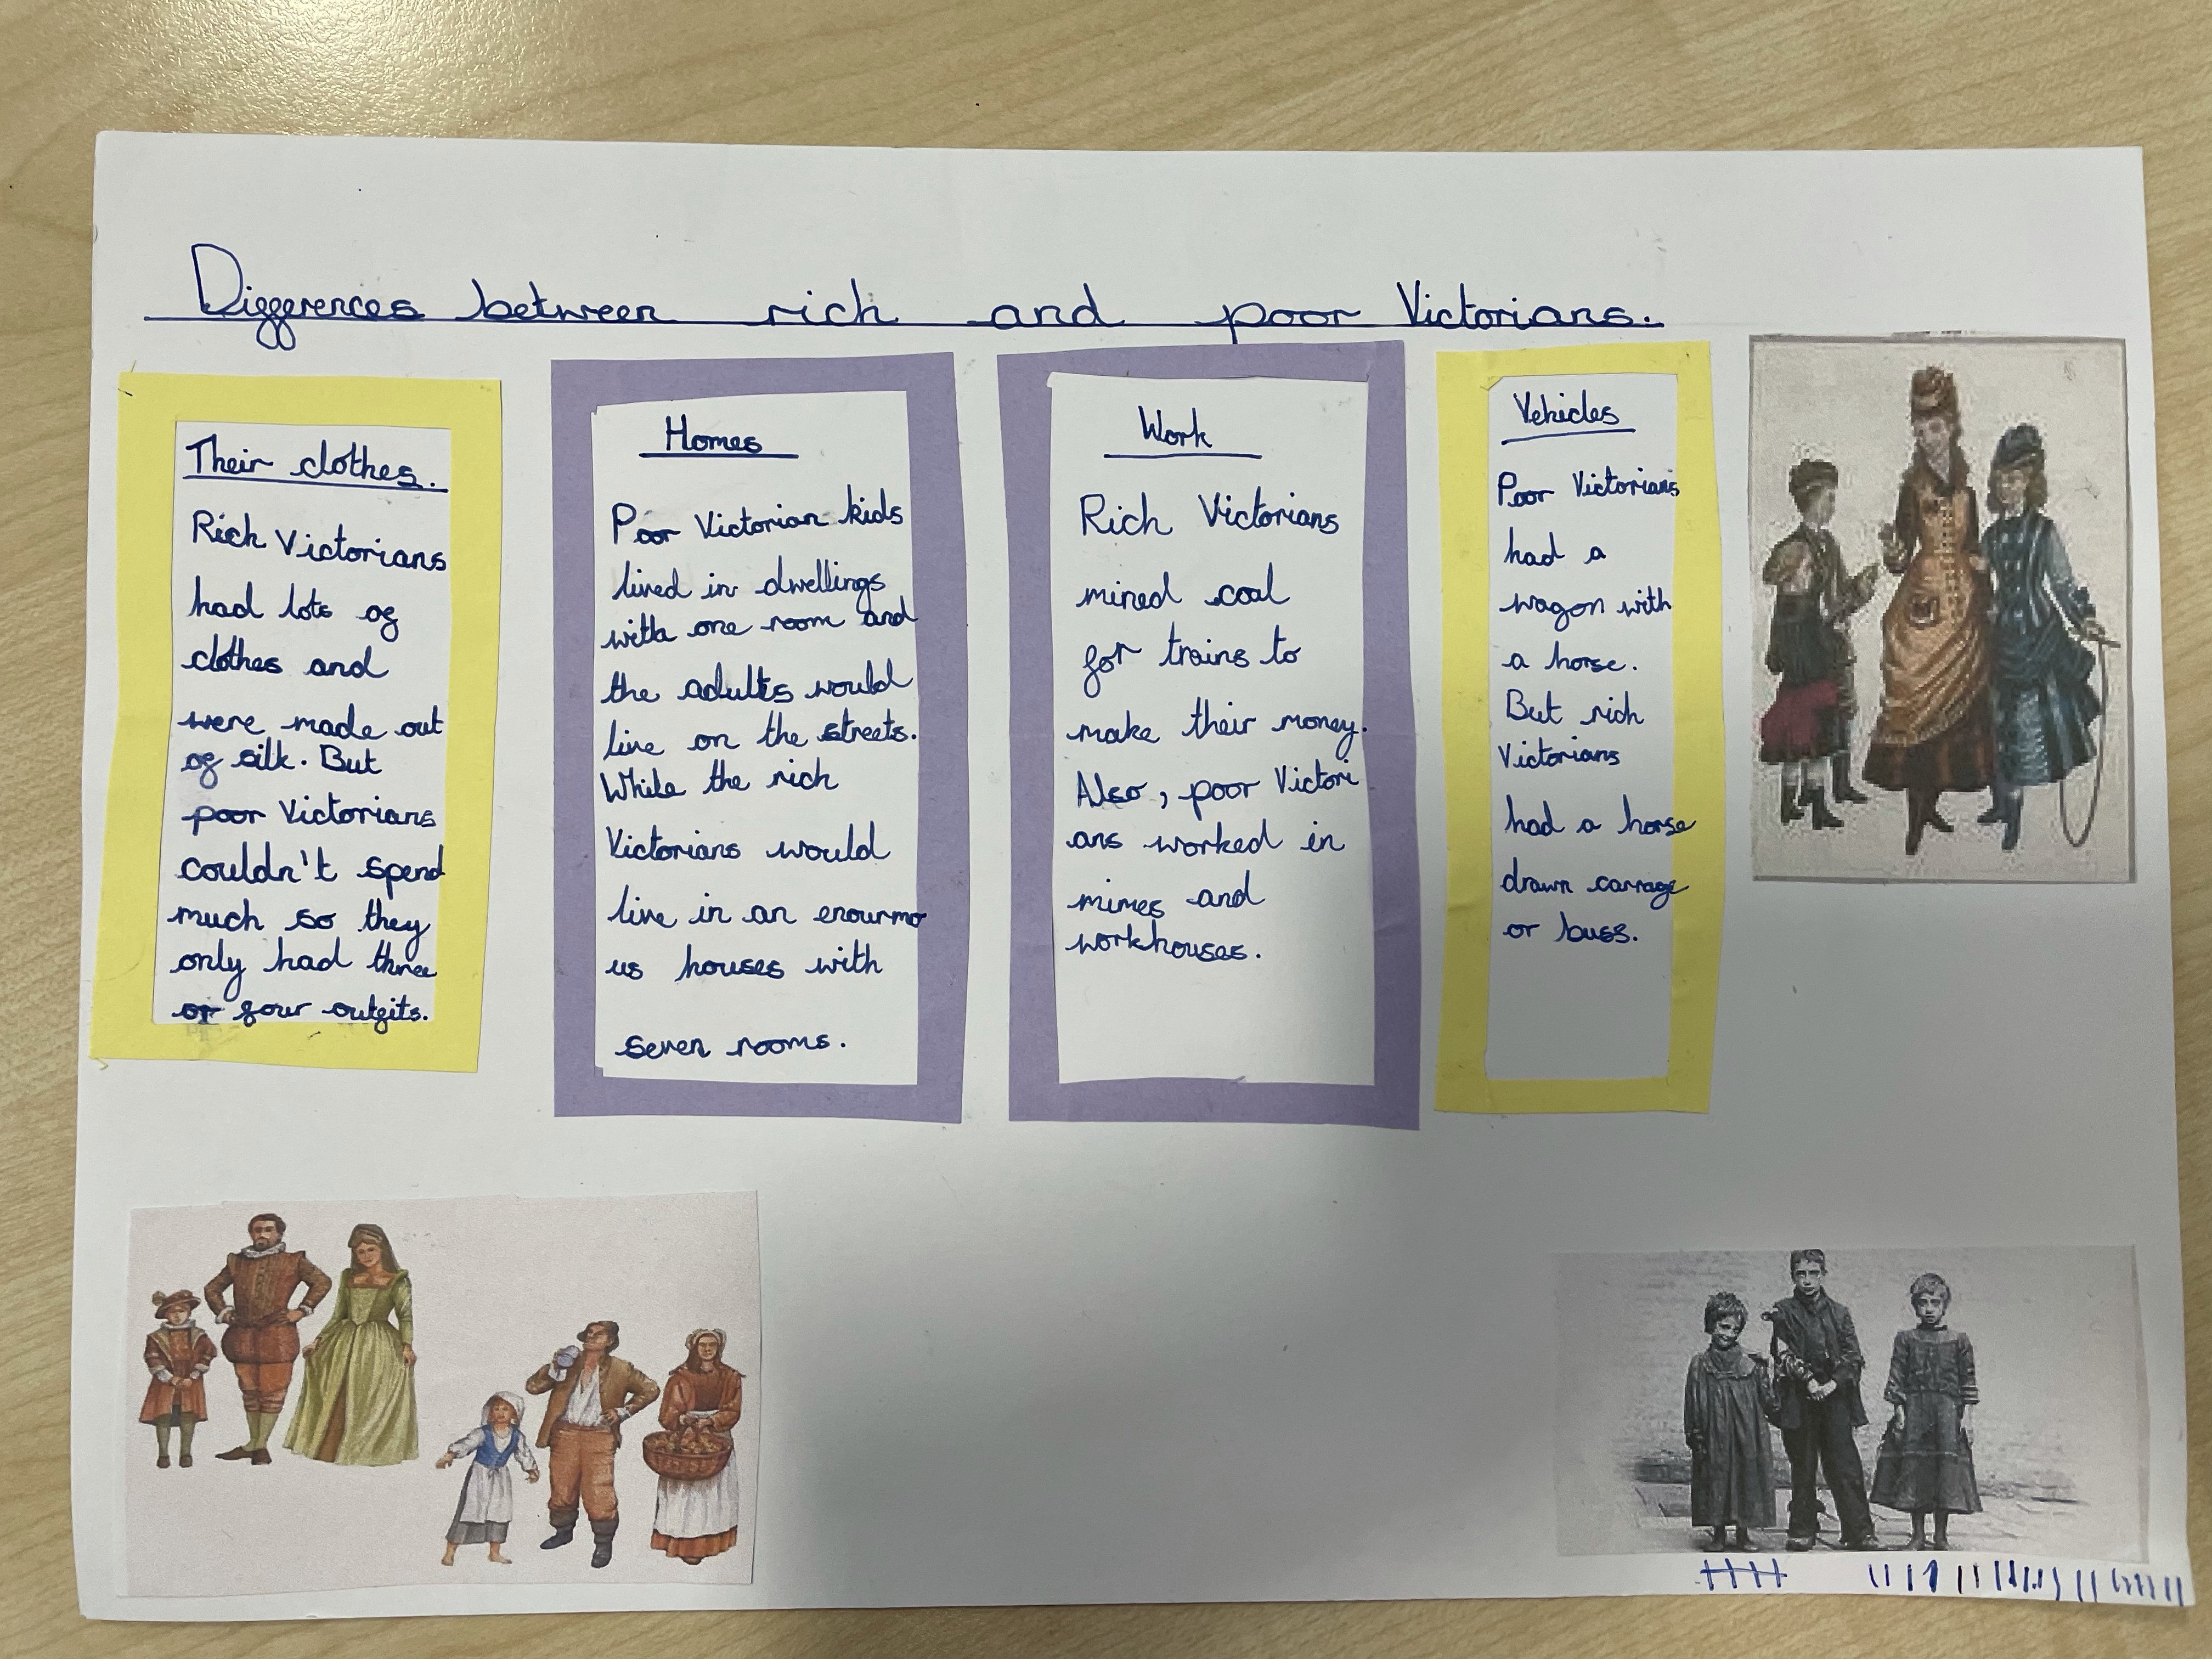 Differences between rich and poor Victorians.
Their clothes.
Rich Victorians
had lots of
clothes and
were made out
of silk. But
poor Victorians
couldn't spend
much so they
only had three
or four outfits.
Homes
Poor Victorian kids
lived in dwellings
with one room and
the adults would
live on the streets.
While the rich
Victorians would
live in an enourmo
us houses with
seven rooms.
Work
Rich Victorians
mined coal
for trains to
make their money.
Also, poor Victori
ans worked in
mimes and
workhouses.
Vehicles
Poor Victorians
had a
wagon with
a horse.
But rich
Victorians
had a horse
drawn carrage
or buss.